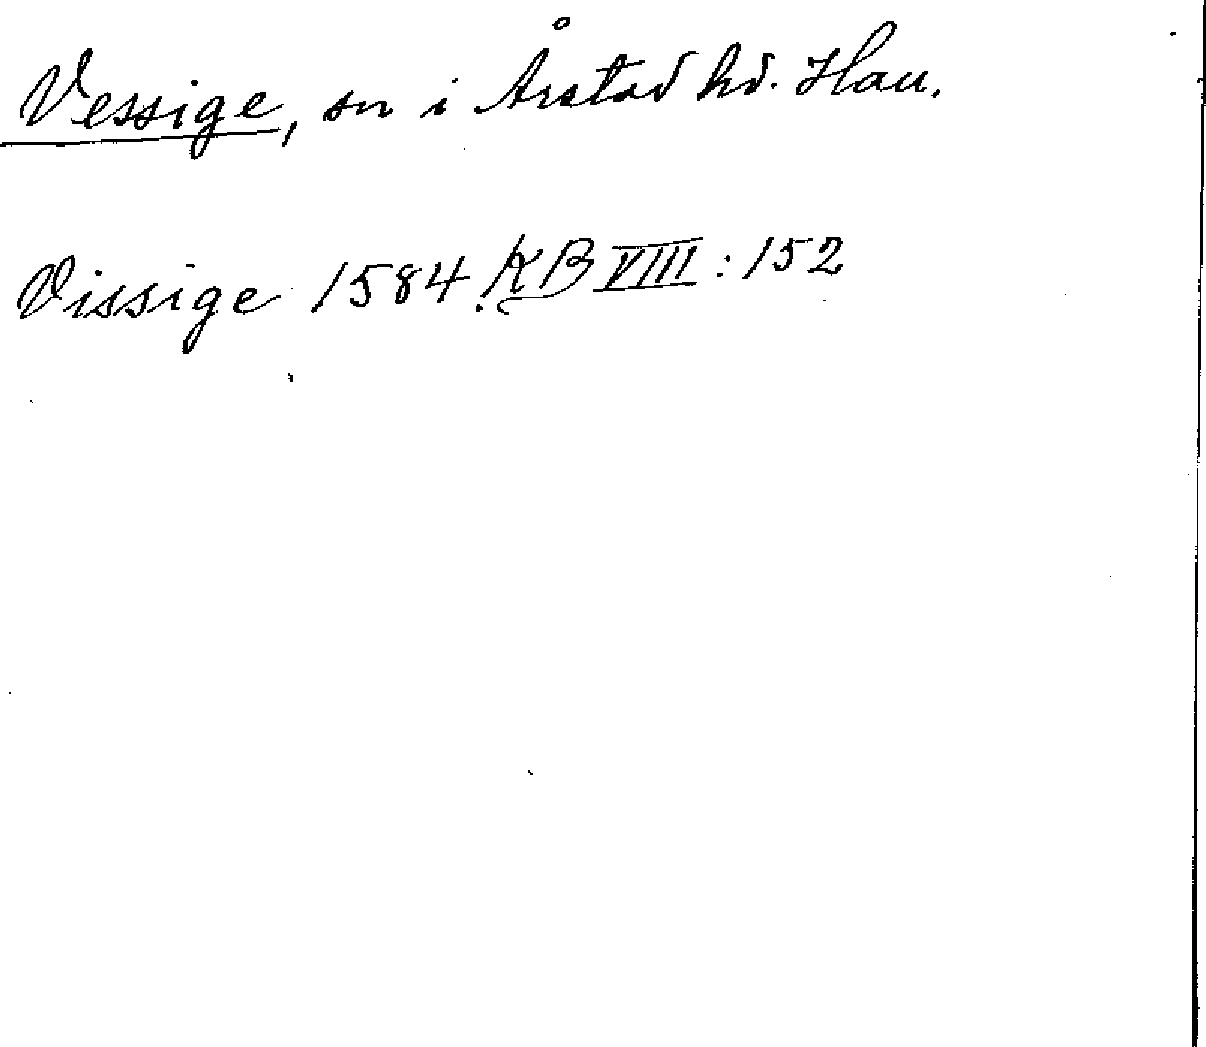 Vessige, sn i Årstad hd. Hall.
Vissige 1584 KB VIII: 152